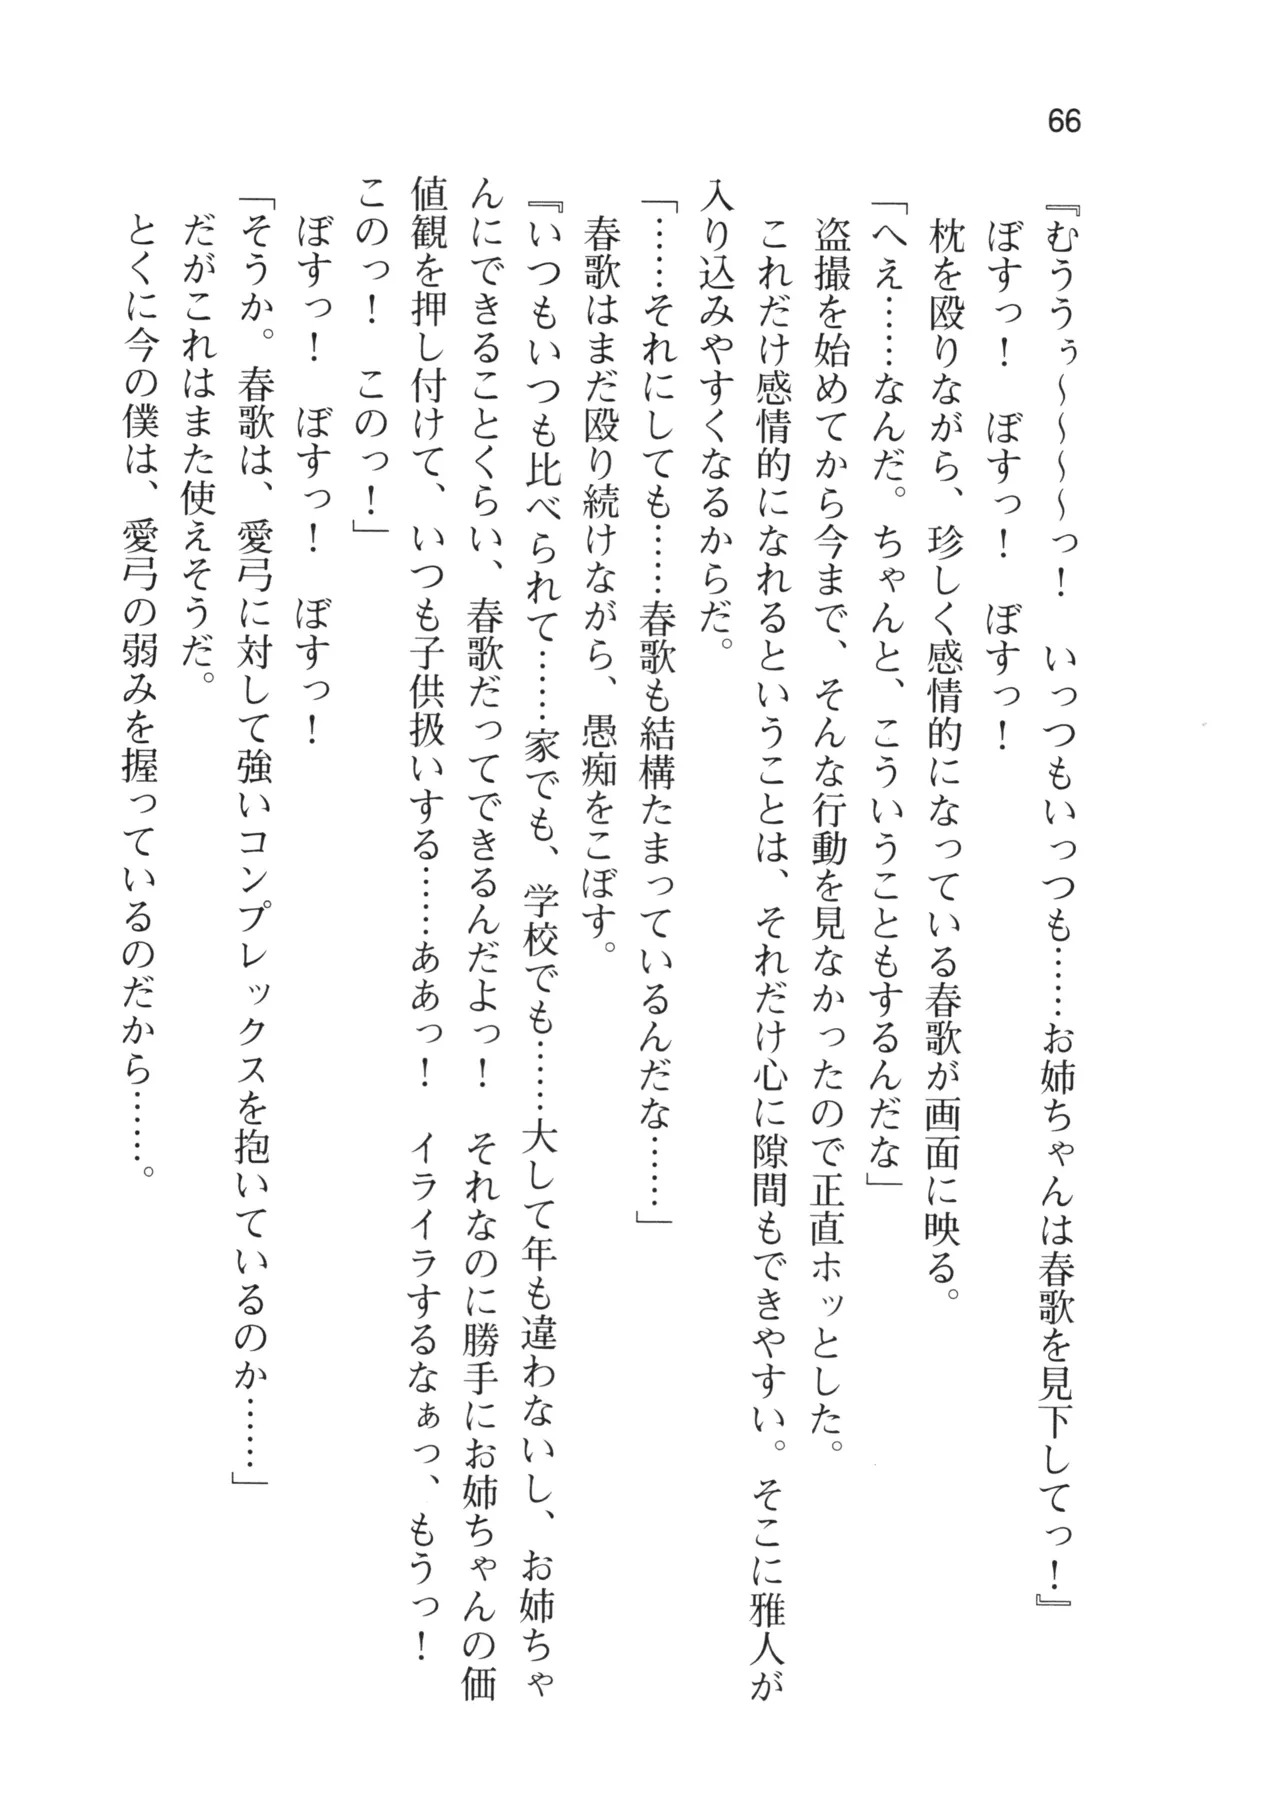 66
『むううぅ〜〜〜〜っ！　いっつもいっつも……お姉ちゃんは春歌を見下してっ！』
ぼすっ！　ぼすっ！　ぼすっ！
枕を殴りながら、珍しく感情的になっている春歌が画面に映る。
「へえ……なんだ。ちゃんと、こういうこともするんだな」
盗撮を始めてから今まで、そんな行動を見なかったので正直ホッとした。
これだけ感情的になれるということは、それだけ心に隙間もできやすい。そこに雅人が
入り込みやすくなるからだ。
「……それにしても……春歌も結構たまっているんだな……」
春歌はまだ殴り続けながら、愚痴をこぼす。
『いつもいつも比べられて……家でも、学校でも……大して年も違わないし、お姉ちゃ
んにできることくらい、春歌だってできるんだよっ！　それなのに勝手にお姉ちゃんの価
値観を押し付けて、いつも子供扱いする……ああっ！　イライラするなぁっ、もうっ！
このっ！　このっ！」
ぼすっ！　ぼすっ！　ぼすっ！
「そうか。春歌は、愛弓に対して強いコンプレックスを抱いているのか……」
だがこれはまた使えそうだ。
とくに今の僕は、愛弓の弱みを握っているのだから……。